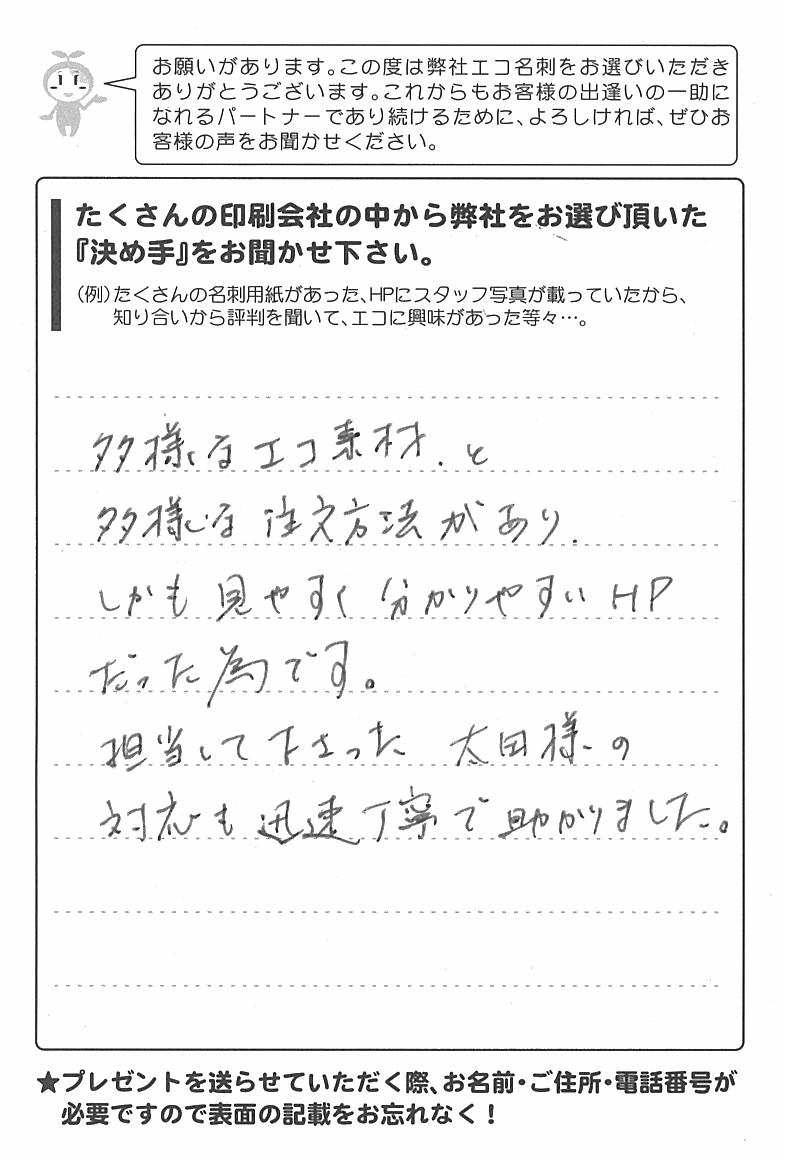 お願いがあります。この度は弊社エコ名刺をお選びいただき
ありがとうございます。これからもお客様の出逢いの一助に
なれるパートナーであり続けるために、よろしければ、ぜひお
客様の声をお聞かせください。
たくさんの印刷会社の中から弊社をお選び頂いた
『決め手』をお聞かせ下さい。
（例）たくさんの名刺用紙があった、HPにスタッフ写真が載っていたから、
知り合いから評判を聞いて、エコに興味があった等々…。
多様なエコ素材、と
多様な注文方法があり、
しかも見やすく分かりやすいHP
だった為です。
担当して下さった 太田様の
対応も迅速丁寧で助かりました。
★プレゼントを送らせていただく際、お名前・ご住所・電話番号が
必要ですので表面の記載をお忘れなく！